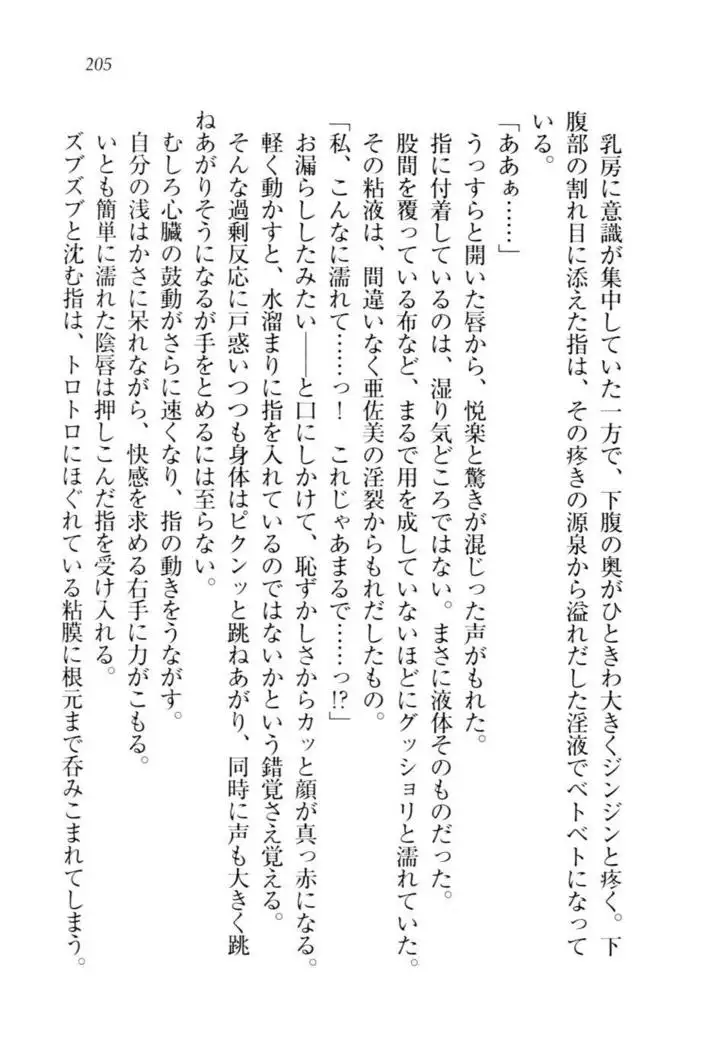 205
乳房に意識が集中していた一方で、下腹の奥がひときわ大きくジンジンと疼く。下
腹部の割れ目に添えた指は、その疼きの源泉から溢れだした淫液でベトベトになって
いる。
「あぁぁ……」
うっすらと開いた唇から、悦楽と驚きが混じった声がもれた。
指に付着しているのは、湿り気どころではない。まさに液体そのものだった。
股間を覆っている布など、まるで用を成していないほどにグッショリと濡れていた。
その粘液は、間違いなく亜佐美の淫裂からもれだしたもの。
「私、こんなに濡れて……っ！　これじゃあまるで……っ!?」
お漏らししたみたい――と口にしかけて、恥ずかしさからカッと顔が真っ赤になる。
軽く動かすと、水溜まりに指を入れているのではないかという錯覚さえ覚える。
そんな過剰反応に戸惑いつつも身体はピクンッと跳ねあがり、同時に声も大きく跳
ねあがりそうになるが手をとめるには至らない。
むしろ心臓の鼓動がさらに速くなり、指の動きをうながす。
自分の浅はかさに呆れながら、快感を求める右手に力がこもる。
いとも簡単に濡れた陰唇は押しこんだ指を受け入れる。
ズブズブと沈む指は、トロトロにほぐれている粘膜に根元まで呑みこまれてしまう。